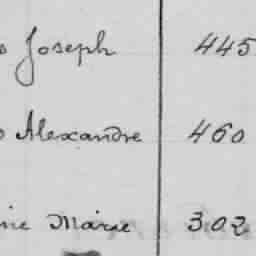 Joseph 445
Alexandre 460
Marie 302